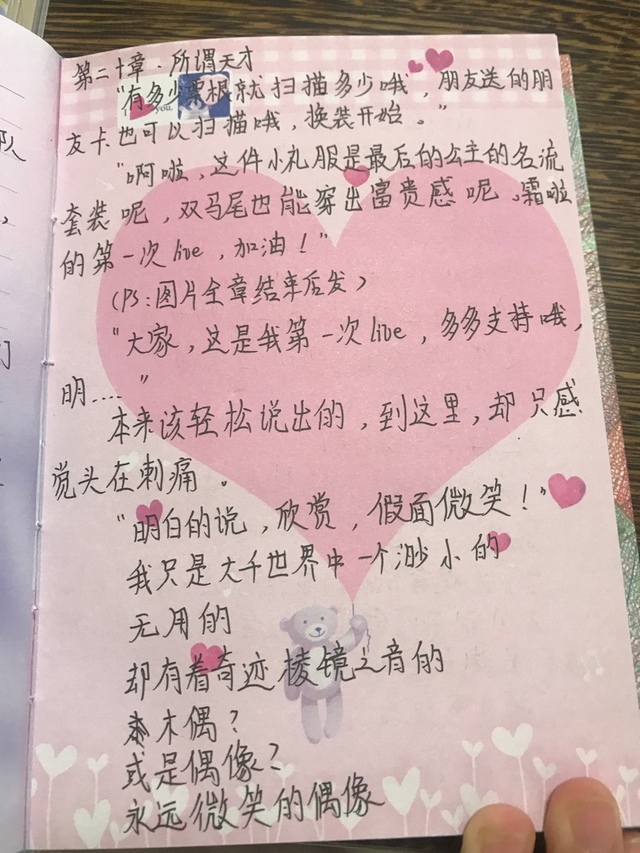 第二十章·所谓天才
"有多少票根就扫描多少哦，朋友送的朋
友卡也可以扫描哦，换装开始。"
"啊啦，这件小礼服是最后的公主的名流
套装呢，双马尾也能穿出富贵感呢。霜啦
的第一次live，加油！"
（PS：图片全章结束后发）
"大家，这是我第一次live，多多支持哦，
明……"
本来该轻松说出的，到这里，却只感
觉头在刺痛。
"明白的说，欣赏，假面微笑！"
我只是大千世界中一个渺小的
无用的
却有着奇迹棱镜之音的
木偶？
或是偶像？
永远微笑的偶像
you.
队